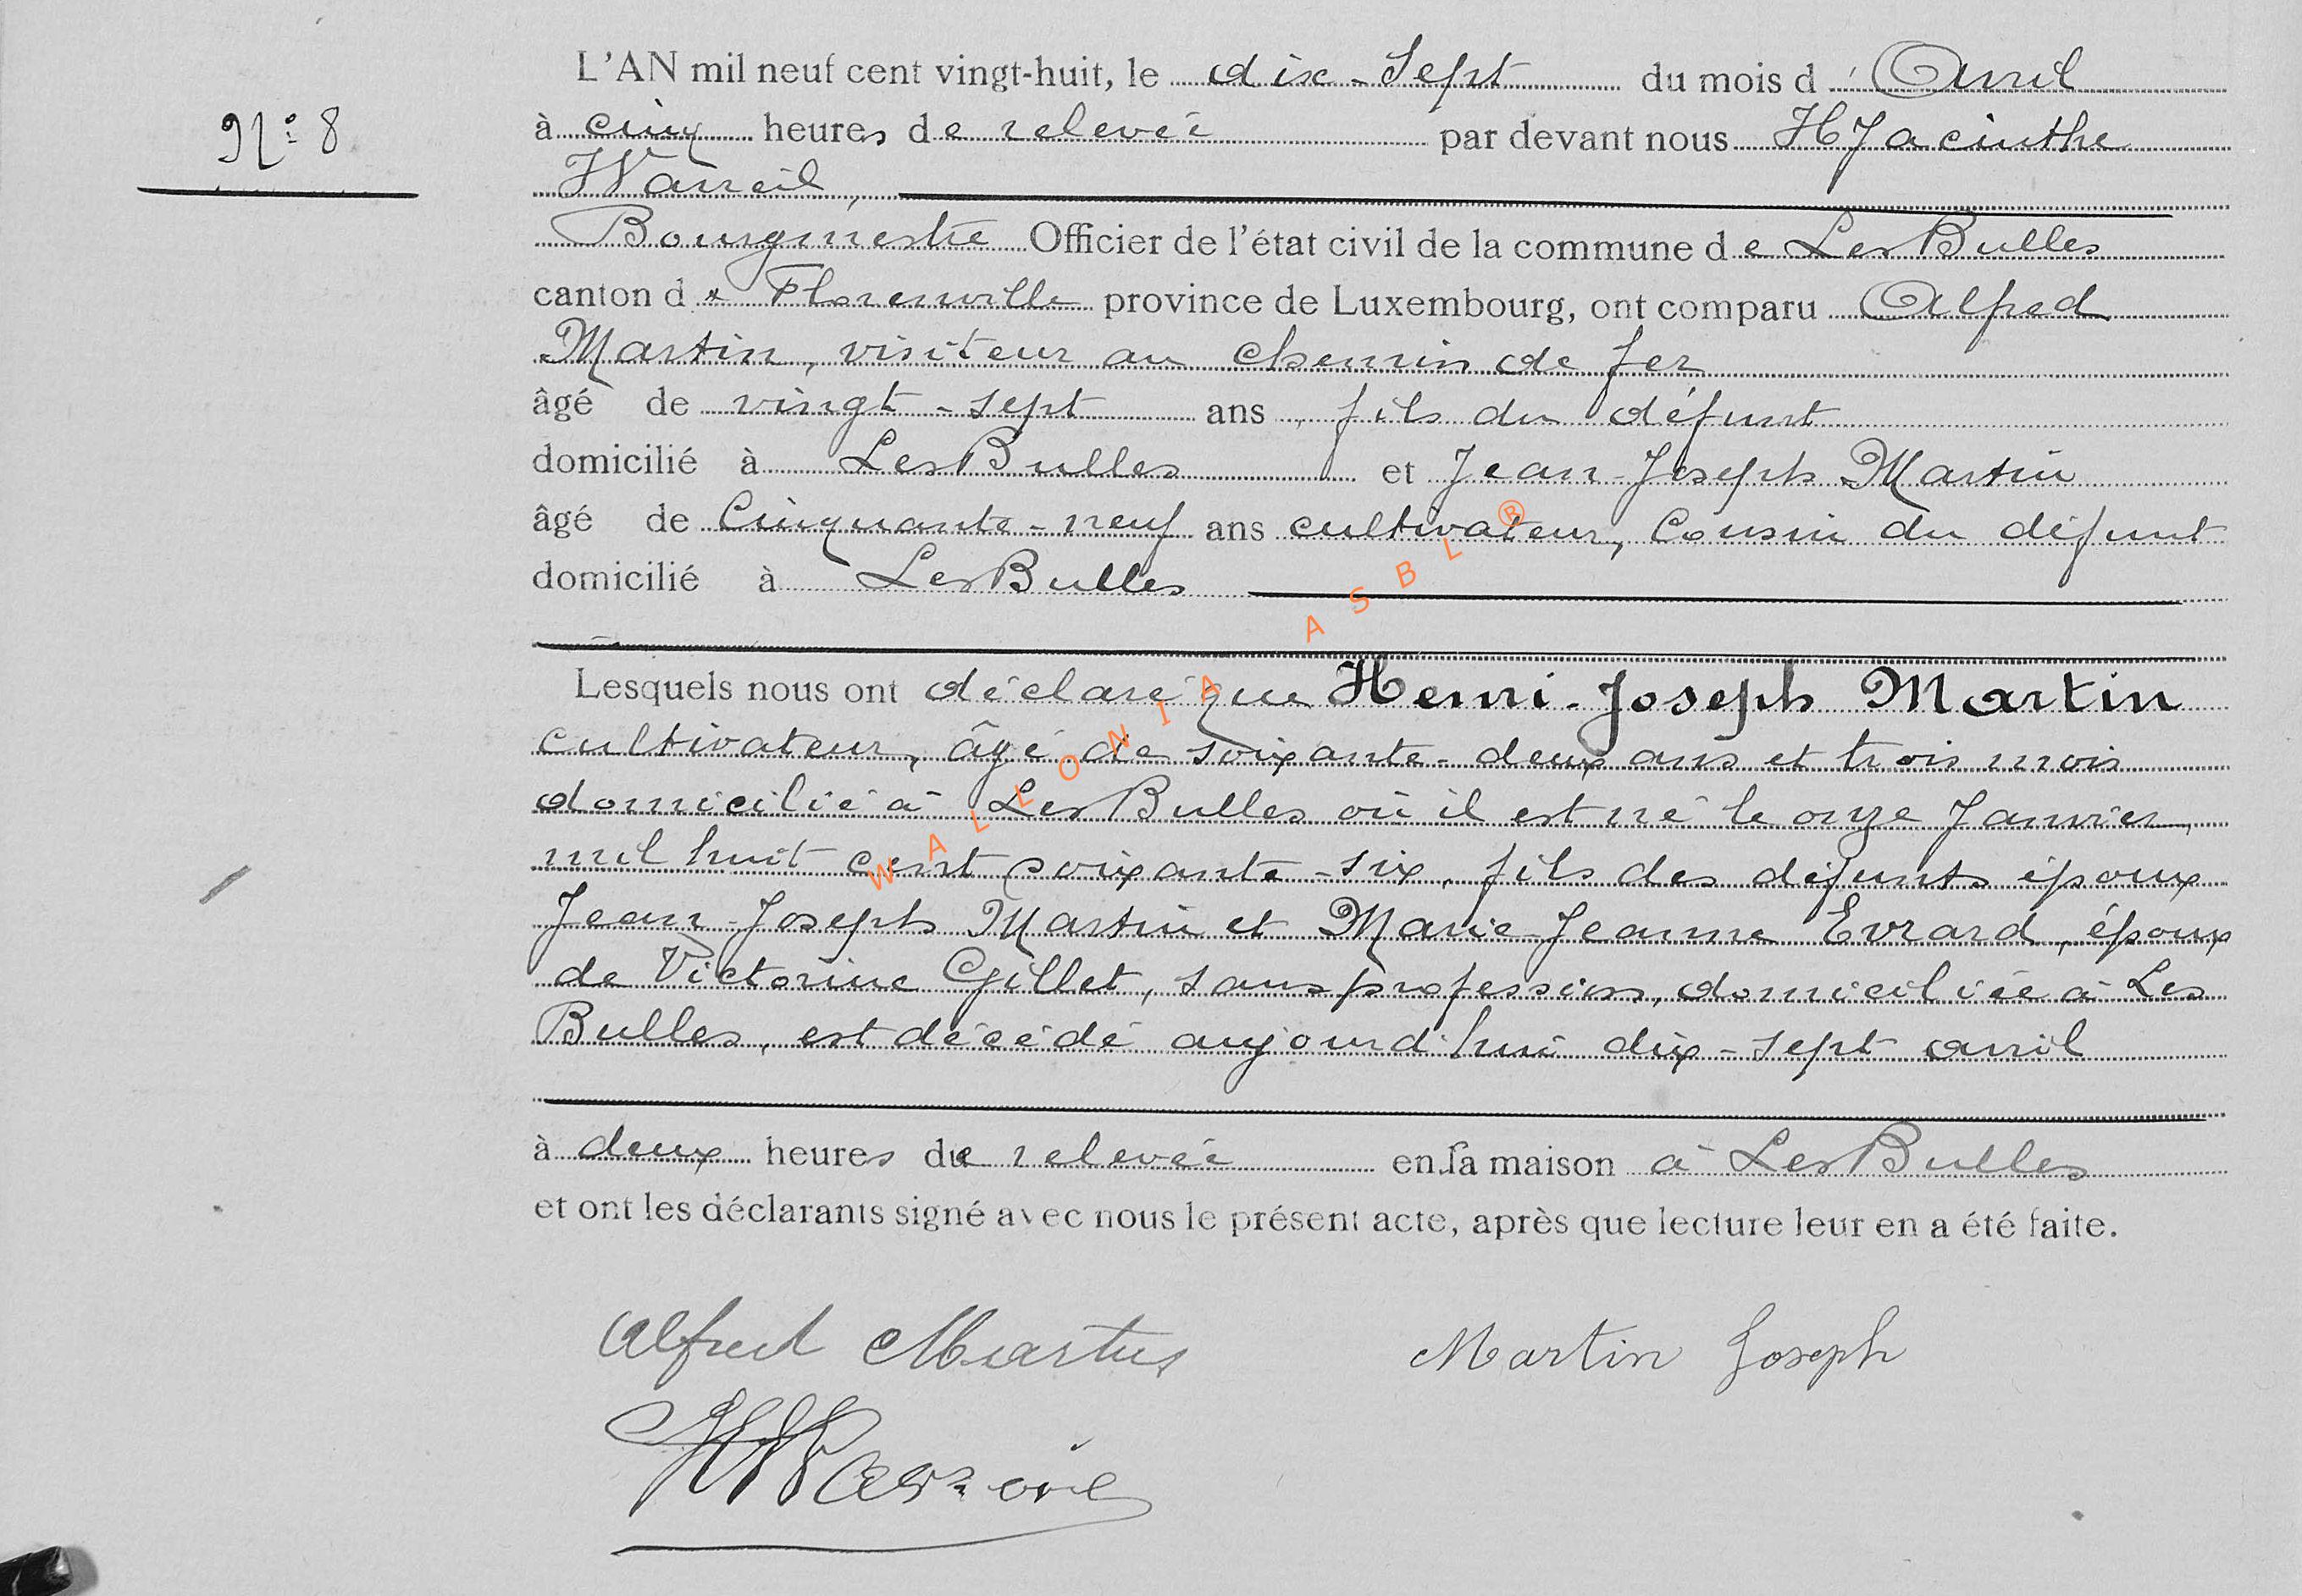 L'AN mil neuf cent vingt-huit, le dix-Sept du mois d'Avril
N° 8
à cinq heures de relevée par devant nous HJacinthe
Wavreil,
Bourgmestre Officier de l'état civil de la commune de LesBulles
canton de Florenville province de Luxembourg, ont comparu Alfred
Martin, visiteur au chemin de fer
âgé de vingt-sept ans, fils du défunt
domicilié à LesBulles et Jean-Joseph Martin
âgé de Cinquante-neuf ans cultivateur, Cousin du défunt
domicilié à LesBulles
Lesquels nous ont déclaré que Henri-Joseph Martin
cultivateur, âgé de soixante-deux ans et trois mois
domicilié à LesBulles où il est né le onze Janvier
mil huit cent soixante-six, fils des défunts époux
Jean-Joseph Martin et Marie-Jeanne Evrard, époux
de Victorine Gillet, sans profession, domiciliée à Les
Bulles, est décédé aujourd'hui dix-sept avril
à deux heures de relevée en sa maison à LesBulles
et ont les déclarants signé avec nous le présent acte, après que lecture leur en a été faite.
Alfred Martin Martin Joseph
WALLONIA ASBL ®